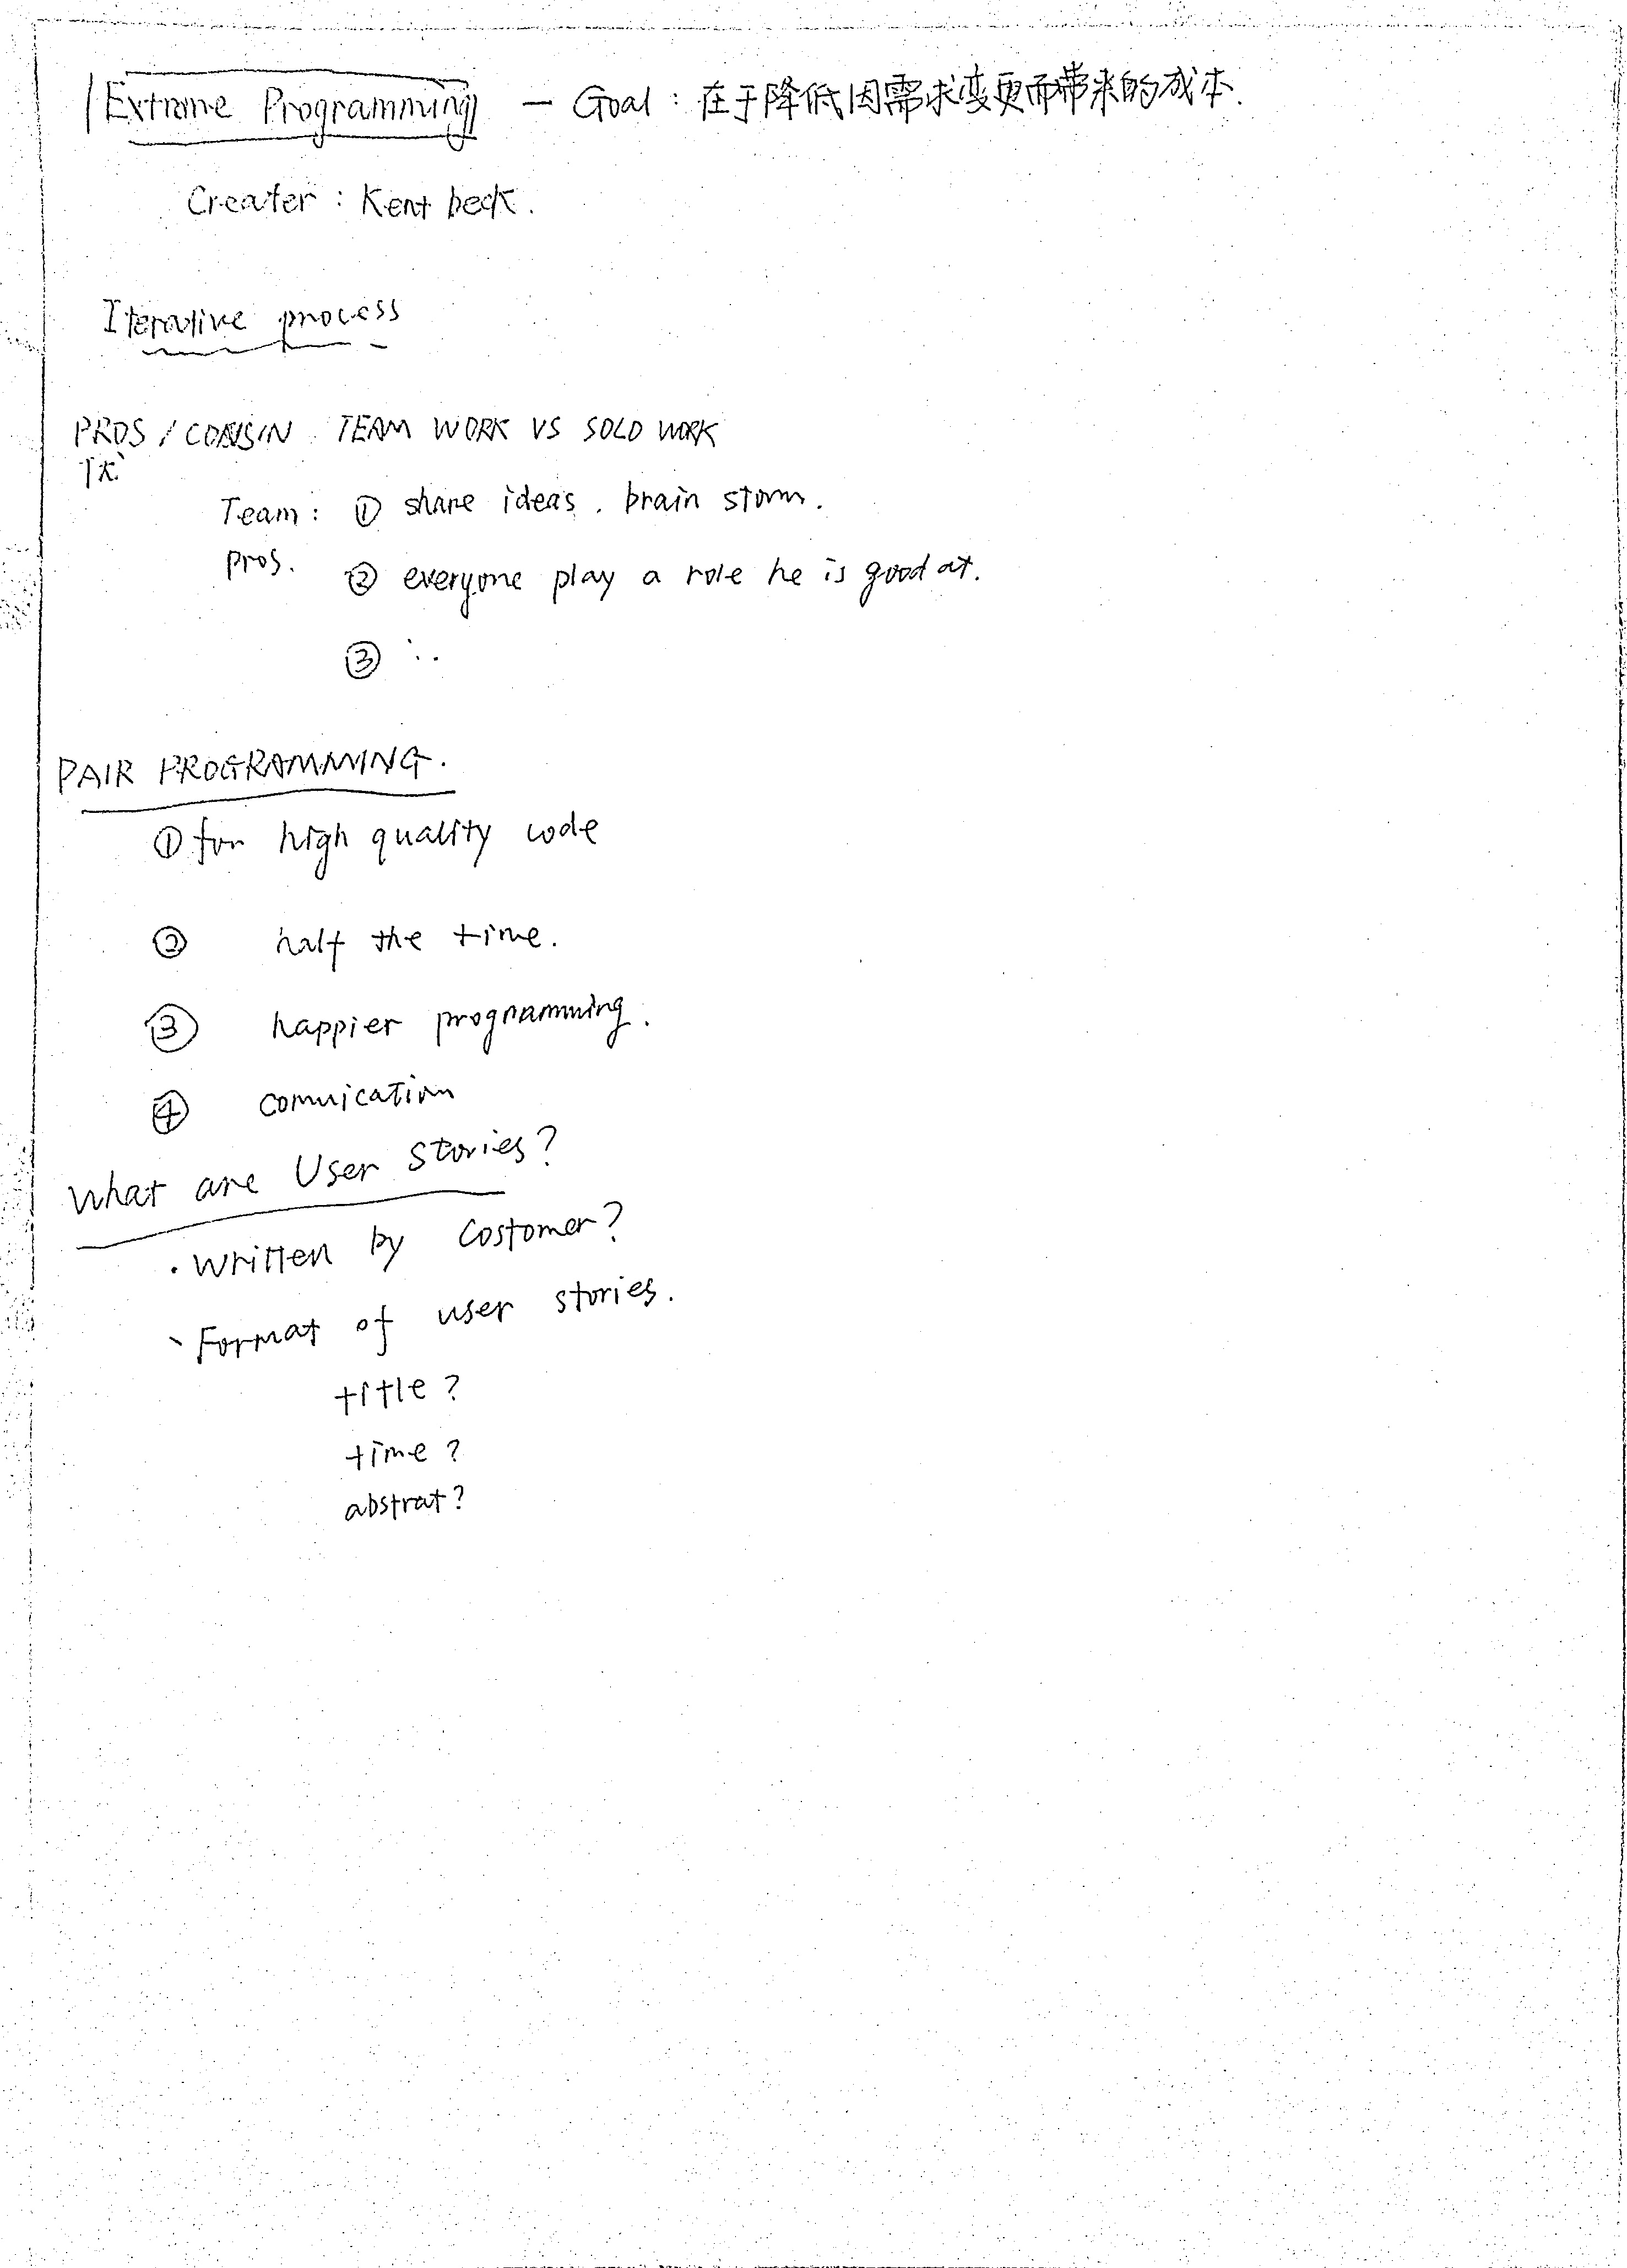 Extreme Programming — Goal : 在于降低因需求变更而带来的成本.
Creater : Kent beck.
Iterative process
PROS / CONS IN TEAM WORK VS SOLO WORK
Team : ① share ideas. brain storm.
pros. ② everyone play a role he is good at.
③ ∵
PAIR PROGRAMMING.
① for high quality code
② half the time.
③ happier programming.
④ comnication
What are User Stories?
· Written by Costomer?
· Format of user stories.
title?
time?
abstrat?